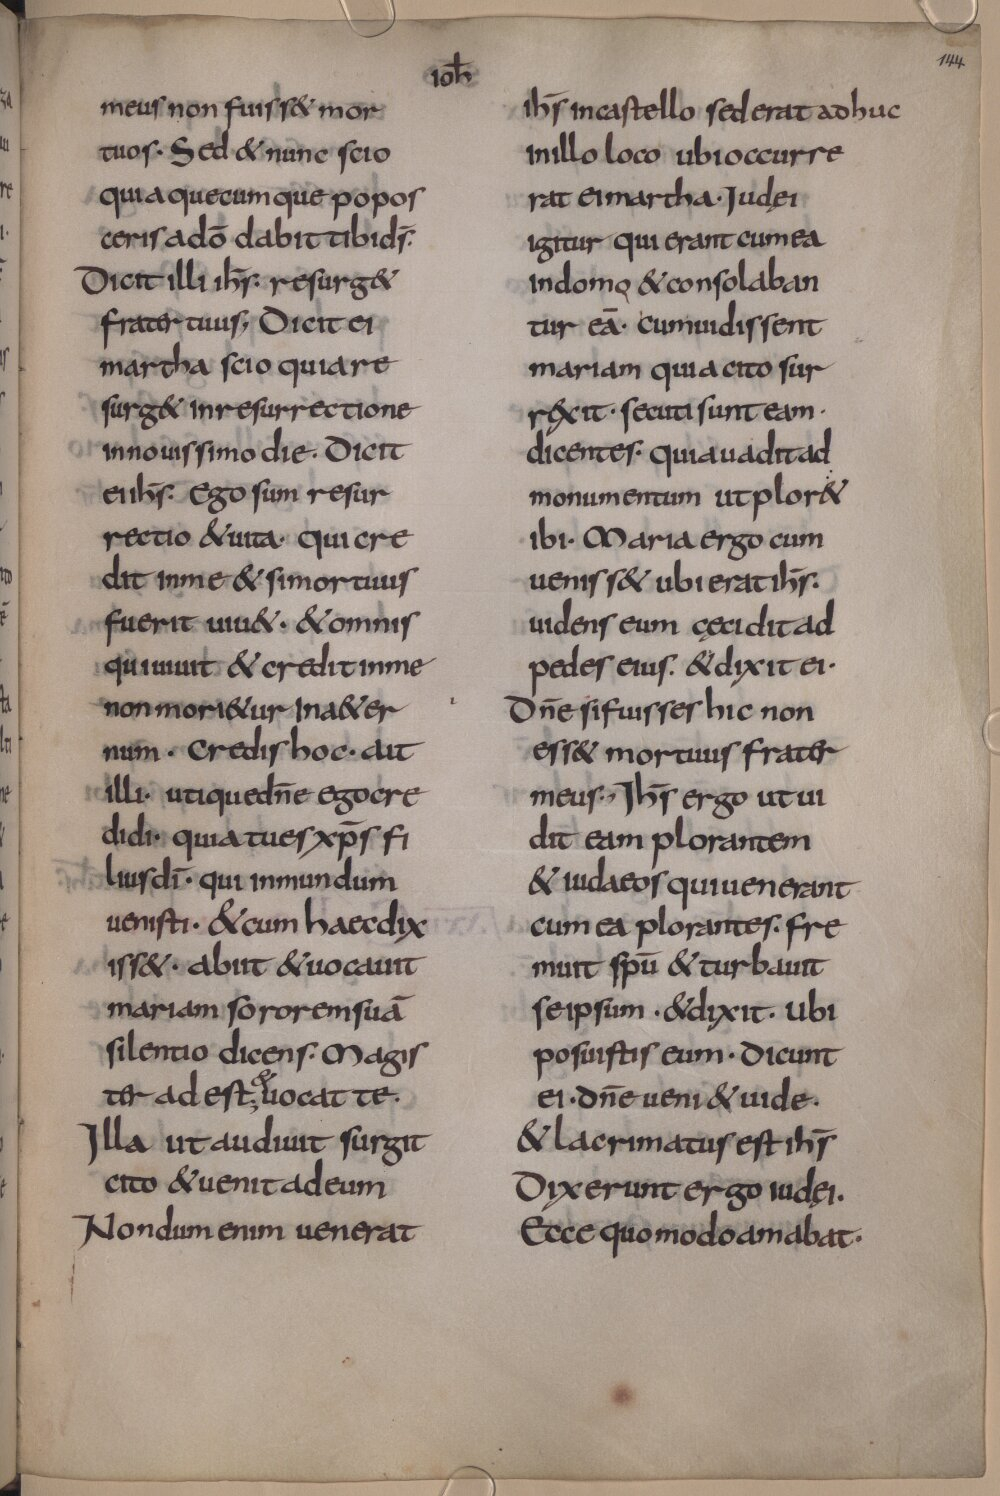 ioh
144
meus non fuiss& mor
tuos· Sed & nunc scio
quia quecumque popos
ceris adō dabit tibi ds̄·
Dicit illi ihs̄· resurg&
frater tuus; Dicit ei
martha scio quia re
surg& in resurrectione
in nouissimo die· Dicit
ei ihs̄· Ego sum resur
rectio & uita· qui cre
dit in me & si mortuus
fuerit uiu&· & omnis
qui uiuit & credit in me
non mori&ur in a&er
num· Credis hoc· ait
illi· utique dn̄e ego cre
didi· quia tu es xp̄s fi
lius dī· qui in mundum
uenisti· & cum haec dix
iss&· abiit & uocauit
mariam sororem suā
silentio dicens· Magis
ter adest, & uocat te·
Illa ut audiuit surgit
cito & uenit ad eum
Nondum enim uenerat
ihs̄ in castello sed erat adhuc
in illo loco ubi occurre
rat ei martha· Iudęi
igitur qui erant cum ea
in domo & consolaban
tur eā· cum uidissent
mariam quia cito sur
r&xit· secuti sunt eam·
dicentes· quia uadit ad
monumentum ut plor&
ibi· Maria ergo cum
ueniss& ubi erat ihs̄·
uidens eum cęcidit ad
pedes eius· & dixit ei·
Dn̄e si fuisses hic non
ess& mortuus frater
meus·, Ihs̄ ergo ut ui
dit eam plorantem
& iudaeos qui uenerant
cum ea plorantes· fre
muit spū & turbauit
se ipsum· & dixit· Ubi
posuistis eum· Dicunt
ei· dn̄e ueni & uide·
& lacrimatus est ihs̄
Dixerunt ergo iudęi·
Ecce quomodo amabat·